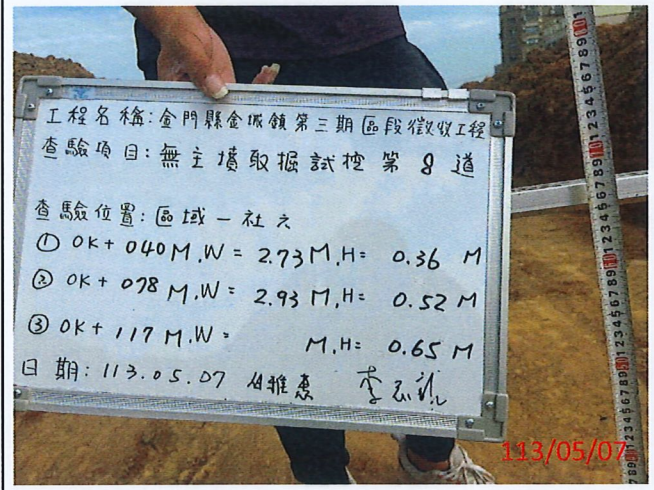 工程名稱:金門縣金城鎮第三期區段徵收工程
查驗項目:無主墳取掘試挖第8道
查驗位置:區域一社之
① 0K+040M.W=2.73M.H=0.36M
② 0K+078M.W=2.93M.H=0.52M
③ 0K+117M.W=    M.H=0.65M
日期:113.05.07 雅惠 李
113/05/07